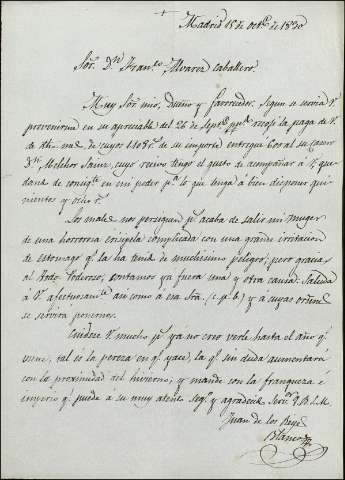 Madrid 15 de octe. de 1830
Sor. Dn. Franco. Alvarez Caballero.
Muy Sor. mio, Dueño y favorecedor. Segun se servia V.
prevenirme en su apreciable del 26 de Septe. ppdo. recogí la paga de V.
de dho. mes de cuyos 1108 rs. de su importe entregué 600 al Sr.
Dn. Melchor Sainz, cuyo recivo tengo el gusto de acompañar á V. que
dando de consigte. en mi poder pa. lo que tenga á bien disponer qui
nientos y ocho rs.
Los males nos persiguen ps. acaba de salir mi muger
de una horrorosa erisipela complicada con una grande irritacion
de estomago qe. la ha tenido de muchisimo peligro; pero gracias
al Todo Poderoso, contamos ya fuera una y otra causa. Saluda
á V. afectuosamte. asi como á esa Sra. (c. p. b.) y á cuyas ordenes
se servirá ponernos.
Cuidese V. mucho ps. ya no creo verle hasta el año qe.
viene, tal es la pereza en qe. yace, la qe. sin duda aumentará
con la proximidad del hivierno, y mande con la franqueza é
imperio qe. puede á su muy atento segо. y agradecido Servor. Q.B.L.M.
Juan de los Reyes
Blanco